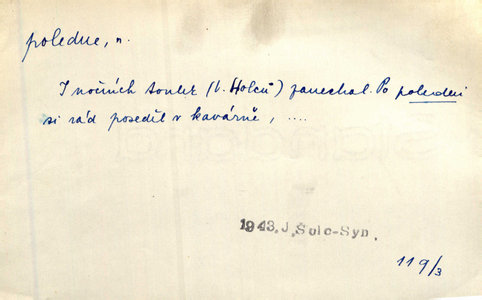 poledne, n.
I nočních toulek (V. Holců) zanechal. Po poledni
si rád posedíl v kavárně, ....
1943. J. Šolc-Syn.
119/3